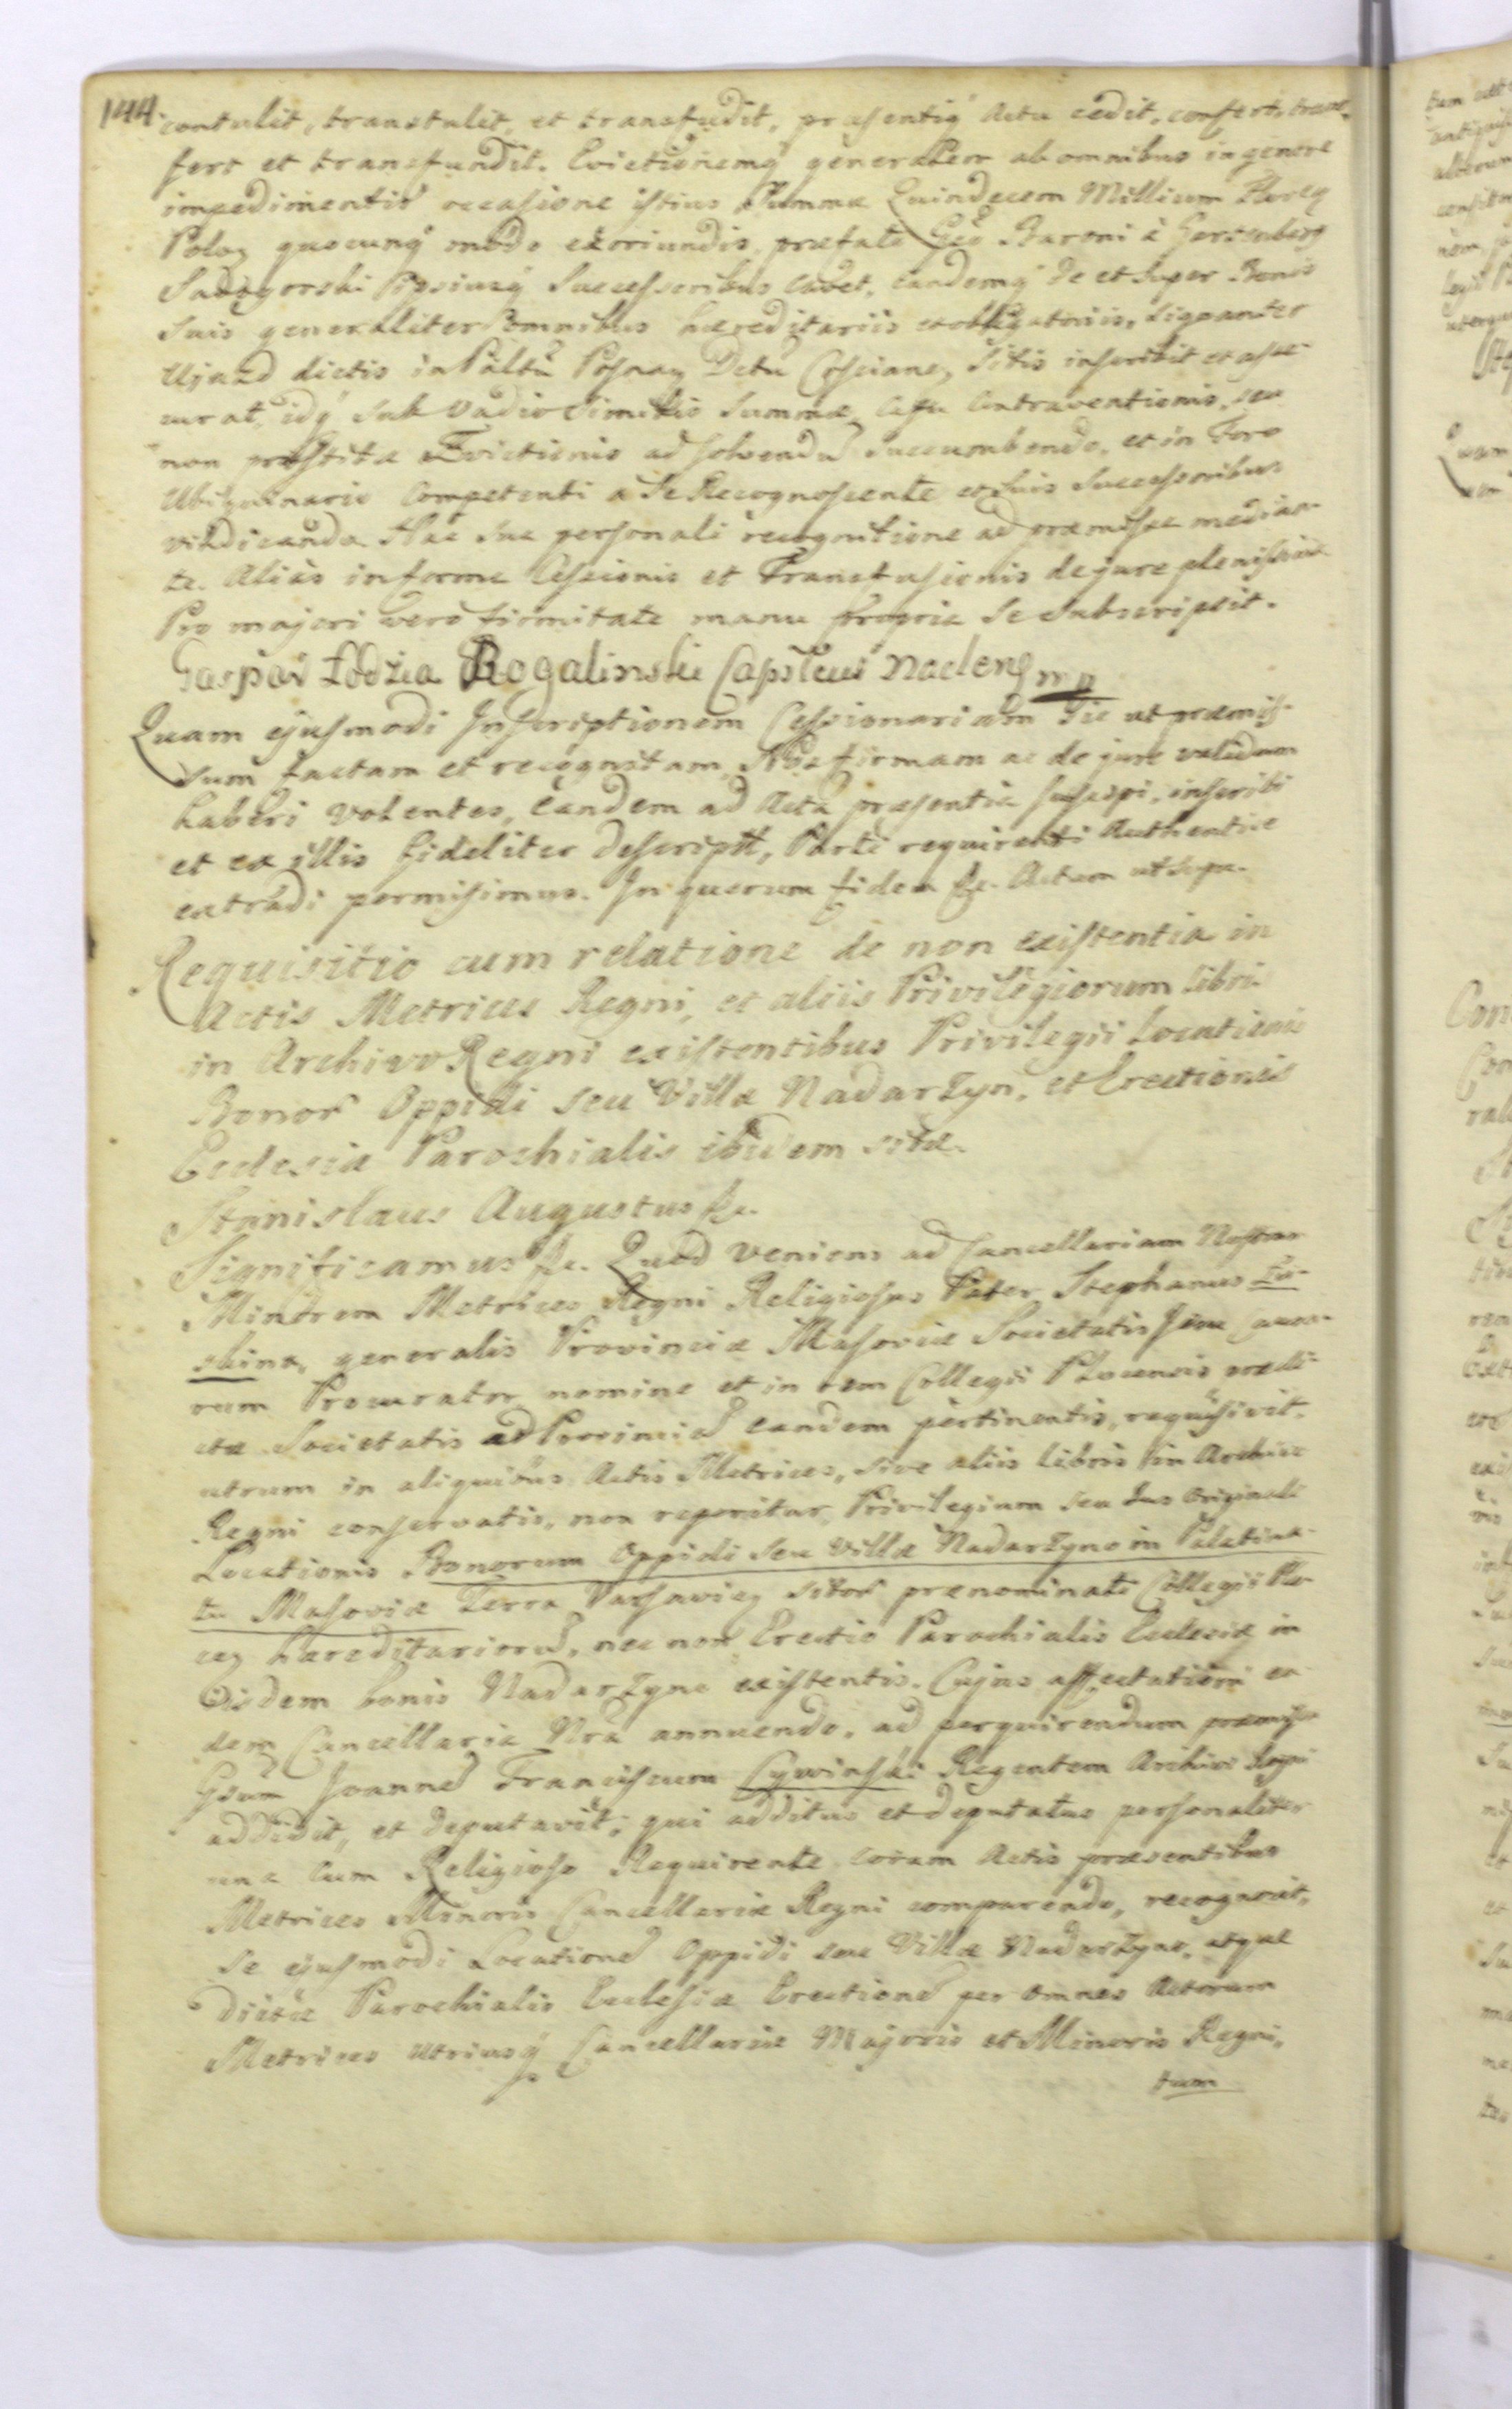 144.
contulit, transtulit, et transfudit, præsentiq̃ Actu cedit, confert, trans-
fert et transfundit. Evictionemq̃ generalem ab omnibus in genere
impedimentis occasione istius Summæ Quindecem Millium Floreg
Poloz quocunq̃ modo exoriundis, præfato Gso Baroni à Gartenberg
Sadogorski Ipsiusq̃ Successoribus cavet, eandemq̃ de et super Bonis
Suis generaliter omnibus hæreditariis et obligatoriis, signanter
Ujazd dictis in Paltu Posnaz Dctu Coscianez Sitis inscribit et asse-
curat, idq̃ sub Vadio Similis Summæ, Casu Contraventionis, seu
non præstitæ Evictionis ad solvendũ succumbendo, et in Foro
Ubiquinario Competenti a Se Recognoscente et suis Successoribus
vindicanda. Hac sua personali recognitione ad præmissa median-
te. Alias in forma Cessionis et Transfusionis de jure plenissima
Pro majori vero firmitate manu propria Se subscripsit.
Gaspar Łodzia Rogalinski Capsteus Naclens mp
Quam ejusmodi Inscriptionem Cessionariam Sic ut præmis-
sum factam et recognitam, Nos firmam ac de jure validam
haberi volentes, Eandem ad Acta præsentia suscipi, inscribi
et ex illis fideliter descriptã, Parti requirenti Authentice
extradi permisimus. In quorum fidem &c. Actum ut supa.
Requisitio cum relatione de non existentia in
Actis Metrices Regni, et aliis Privilegiorum Libri
in Archivo Regni existentibus Privilegii Locationis
Bonor Oppidi seu Villæ Nadarzyn, et Erectionis
Ecclesiæ Parochialis ibidem sitæ.
Stanislaus Augustus &c.
Significamus &c. Quod veniens ad Cancellariam Nostram
Minorem Metrices Regni Religiosus Pater Stephanus Łu-
skina, generalis Provinciæ Masoviæ Societatis Jesu Causa-
rum Procurator nomine et in rem Collegii Plocensis prædi-
ctæ Societatis ad Provinciã eandem pertinentis, requisivit.
utrum in aliquibus Actis Metrices, sive aliis libris in Archivo
Regni conservatis, non reperitur, Privilegium seu Jus Originale
Locationis Bonorum Oppidi seu Villæ Nadarzyno in Palatina-
tu Masoviæ Terra Varsaviez sitor prænominati Collegii Plo-
cez hæreditariorũ, nec non Erectio Parochialis Ecclesiæ in
Eisdem bonis Nadarzyno existentis. Cujus affectationi ea-
dem Cancellaria Nra annuendo, ad perquirendum præmissa
Gsum Joannẽ Franciscum Cywinski Regentem Archivi Regni
addidit, et deputavit; qui additus et deputatus personaliter
una cum Religioso Requirente coram Actis præsentibus
Metrices Minoris Cancellariæ Regni comparendo, recognovit,
Se ejusmodi Locationẽ Oppidi seu Villæ Nadarzyno, atque
dictæ Parochialis Ecclesiæ Erectionẽ per omnes Actorum
Metrices utriusq̃ Cancellariæ Majoris et Minoris Regni,
tum